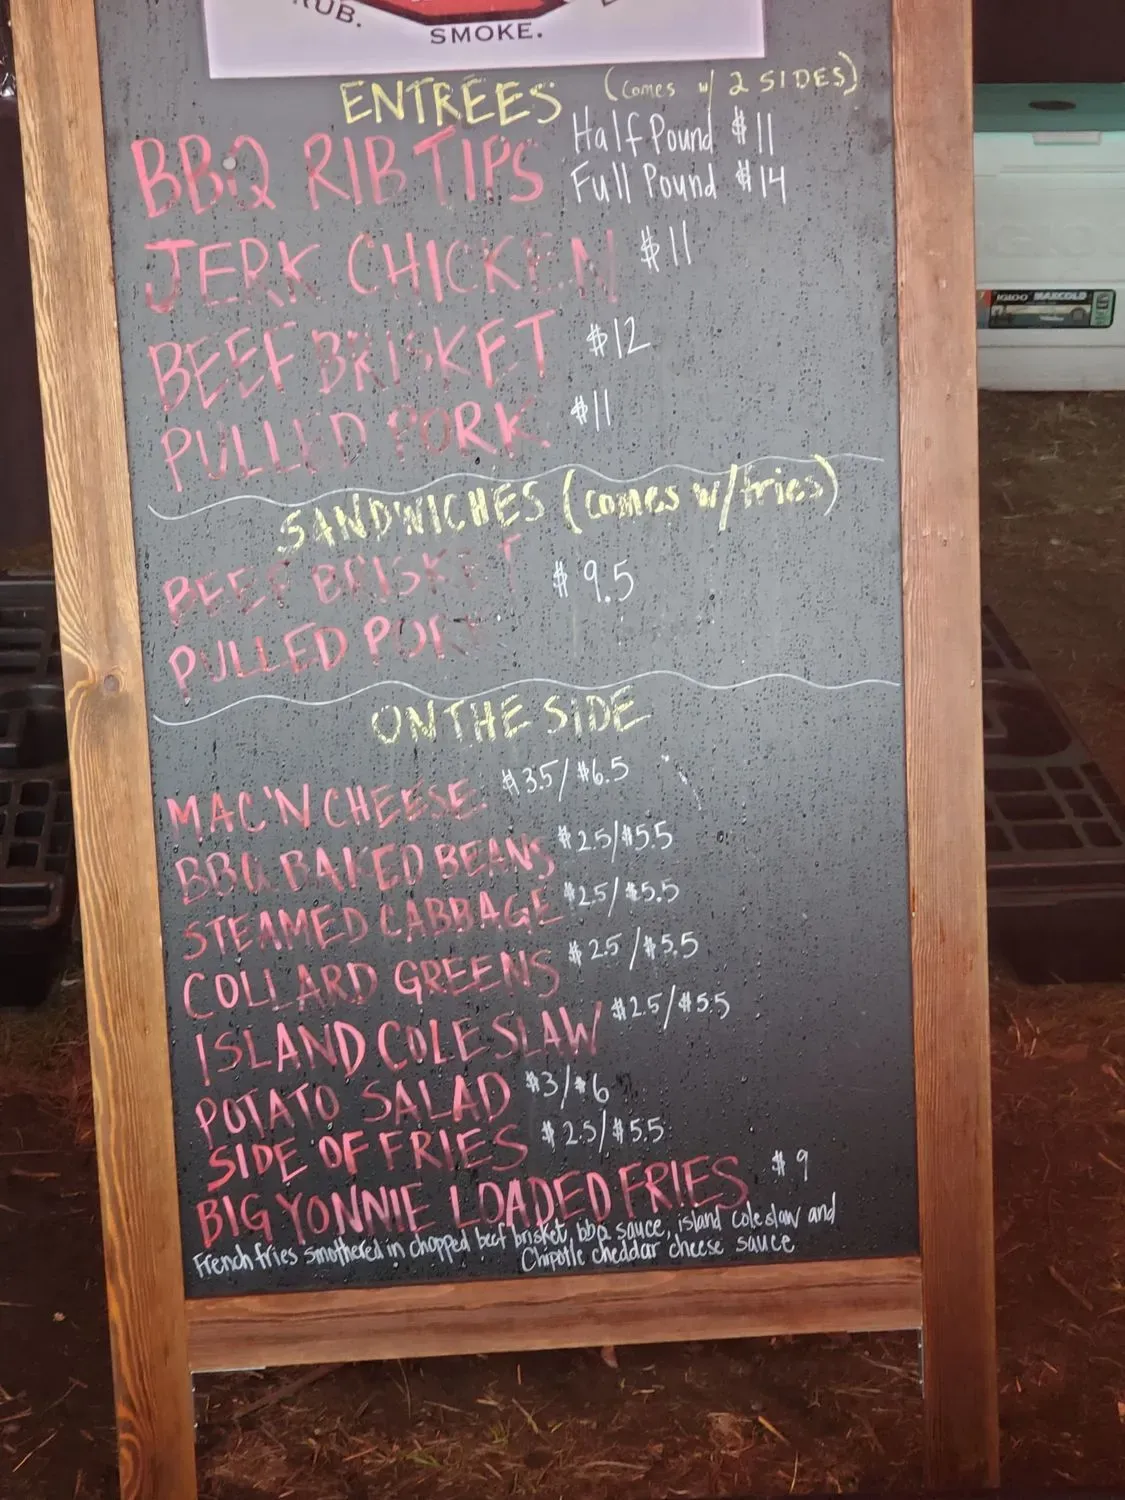 RUB.
SMOKE.
ENTRÉES (Comes w/ 2 SIDES)
BBQ RIB TIPS Half Pound $11
Full Pound $14
JERK CHICKEN $11
BEEF BRISKET $12
PULLED PORK $11
SANDWICHES (Comes w/fries)
BEEF BRISKET $9.5
PULLED PORK
ON THE SIDE
MAC'N CHEESE $3.5/$6.5
BBQ BAKED BEANS $2.5/$5.5
STEAMED CABBAGE $2.5/$5.5
COLLARD GREENS $2.5/$5.5
ISLAND COLESLAW $2.5/$5.5
POTATO SALAD $3/$6
SIDE OF FRIES $2.5/$5.5
BIG YONNIE LOADED FRIES $9
French fries smothered in chopped beef brisket, bbq sauce, island coleslaw and
Chipotle cheddar cheese sauce
IGLOO MAXCOLD